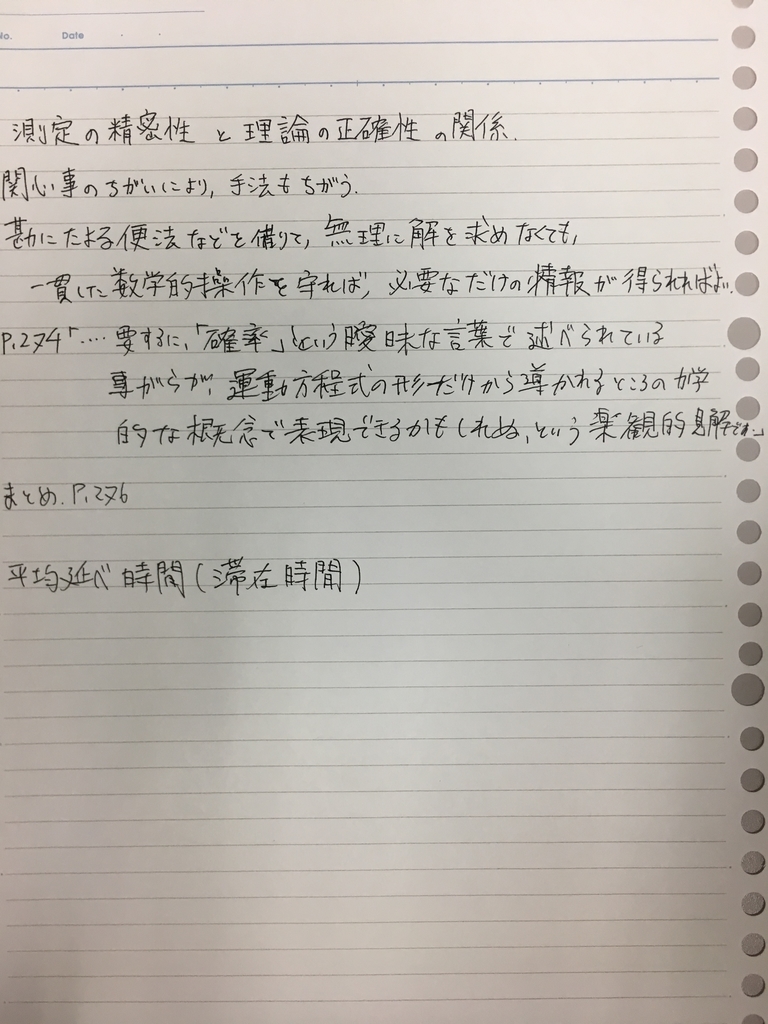 No.
Date
測定の精密性と理論の正確性の関係.
関心事のちがいにより,手法もちがう.
勘にたよる便法などを借りて,無理に解を求めなくても,
一貫した数学的操作を守れば,必要なだけの情報が得られればよい.
P.274「‥‥要するに,「確率」という曖昧な言葉で述べられている
事がらが,運動方程式の形だけから導かれるところの力学
的な概念で表現できるかもしれぬ,という楽観的見解です.」
まとめ.P.276
平均延べ時間(滞在時間)